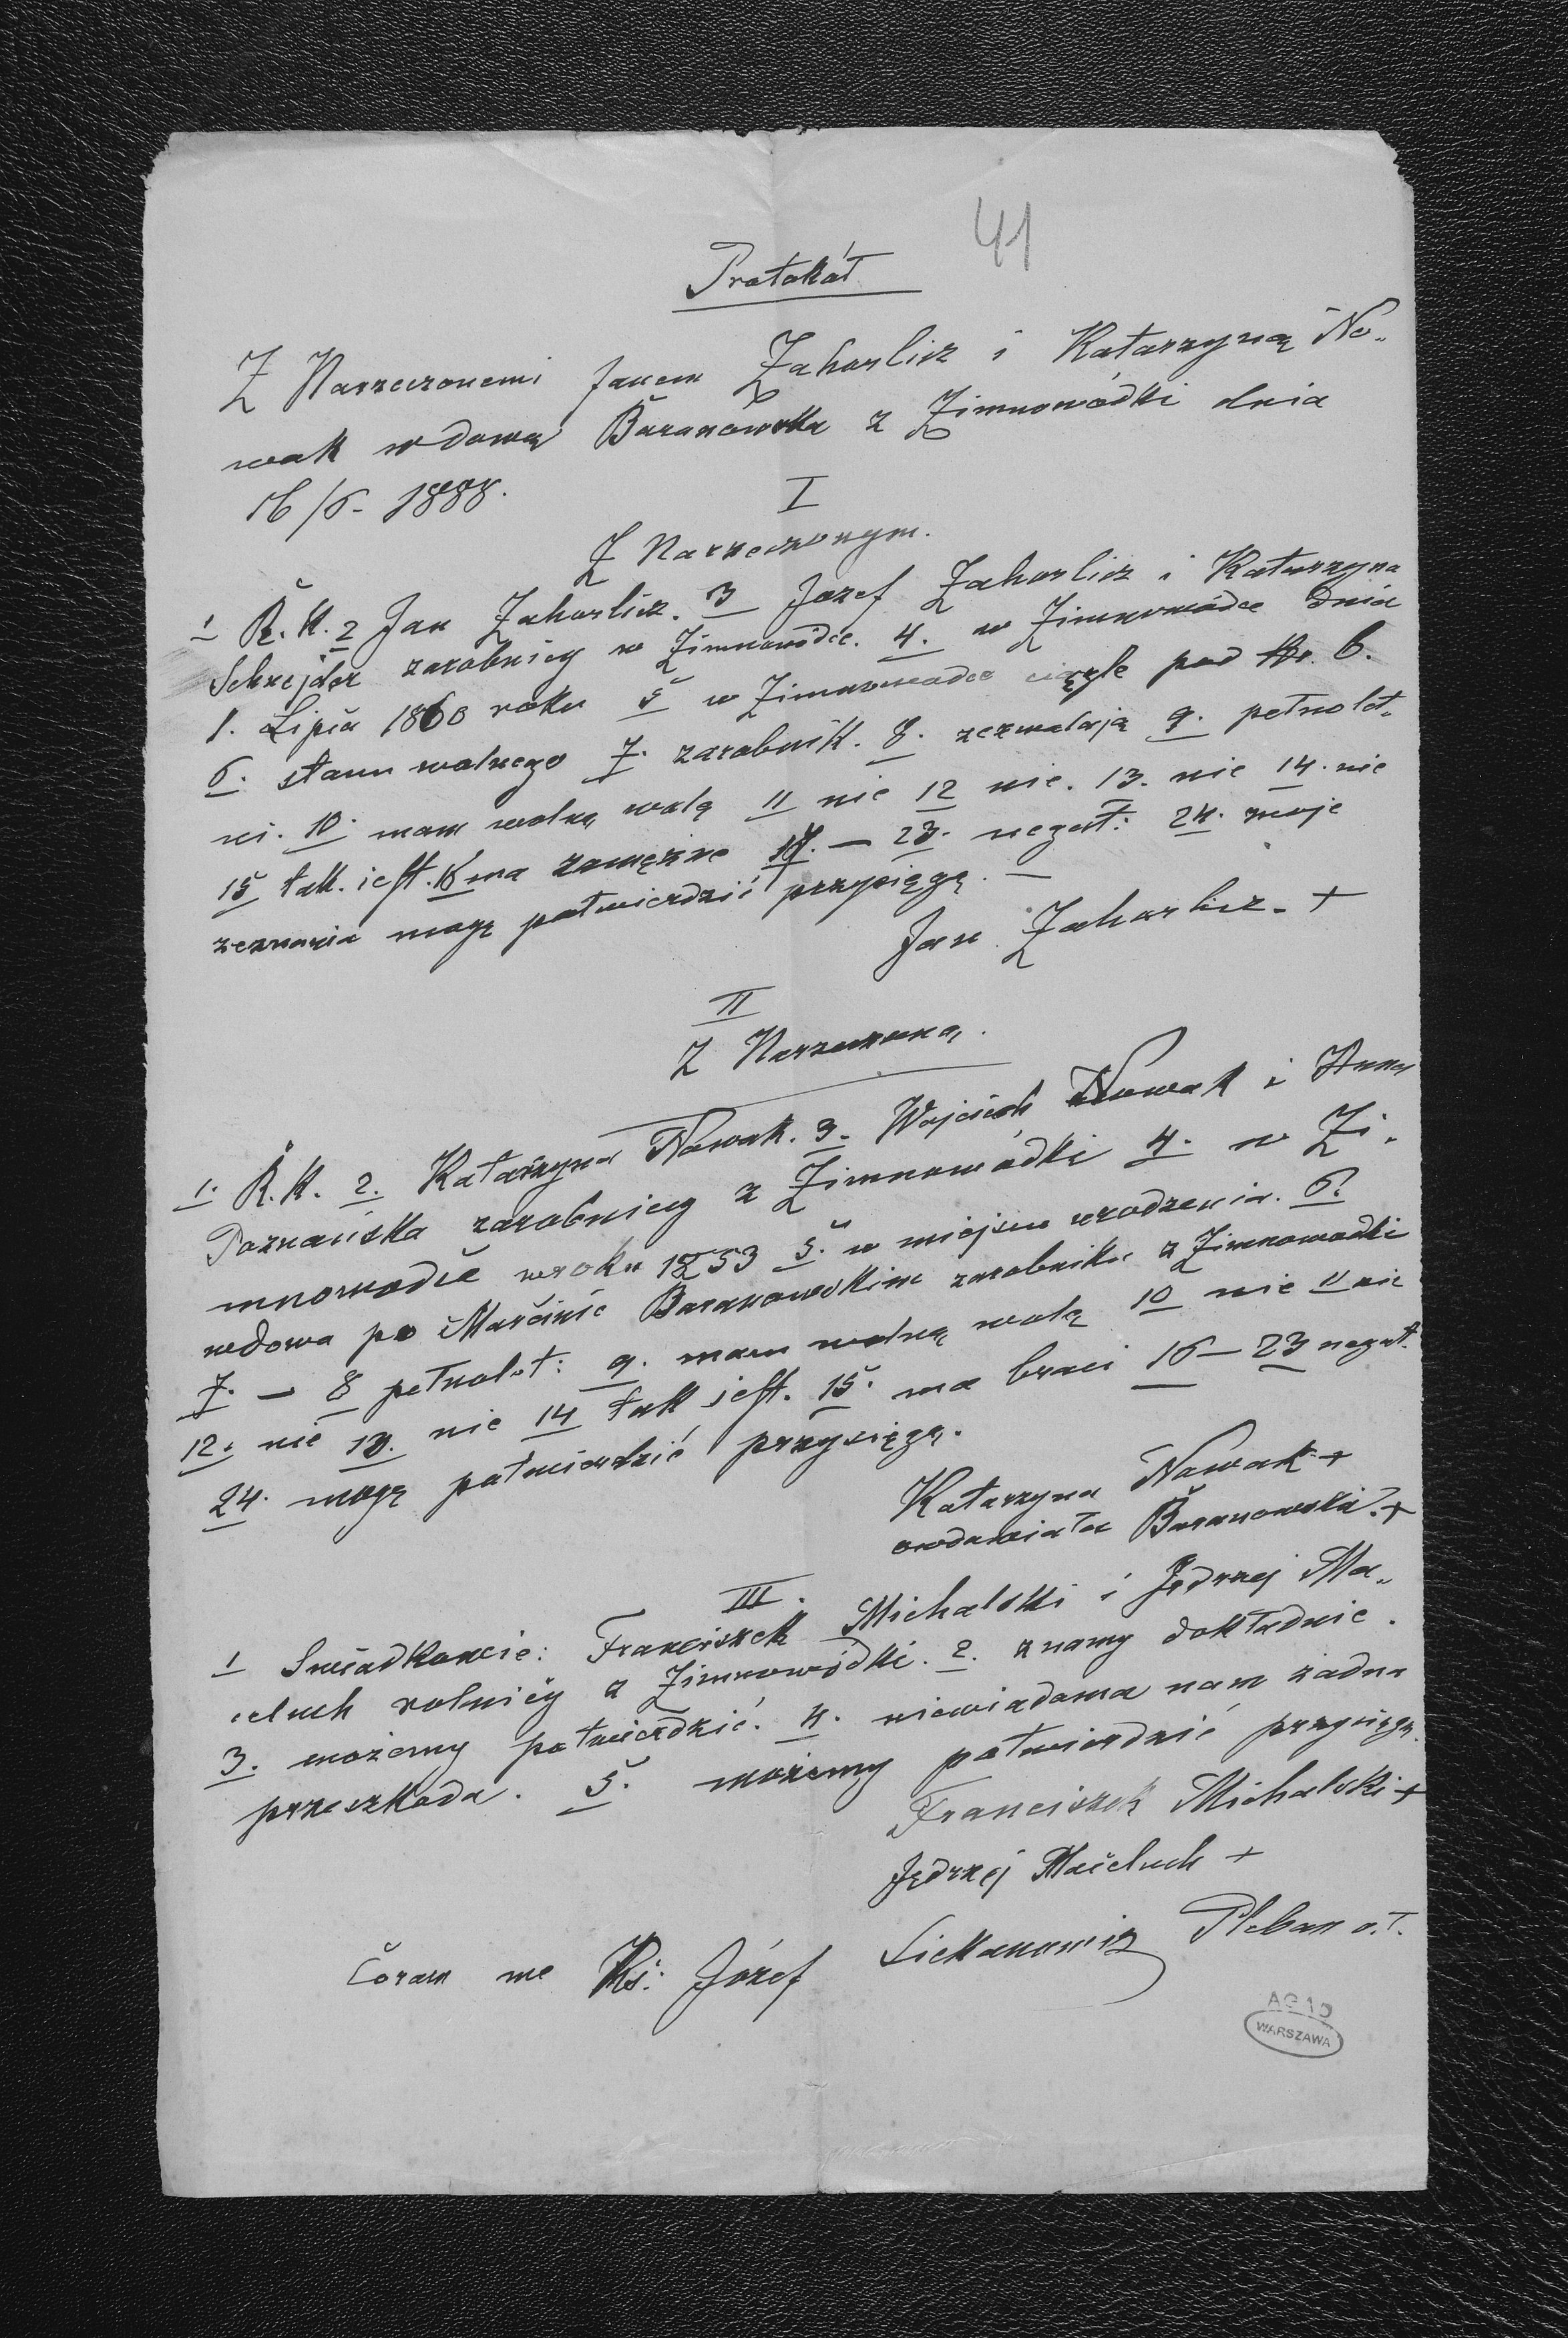 41
Protokół
Z Narzeczonemi Janem Zahorlicz i Katarzyną No-
wak wdową Baranowska z Zimnowódki dnia
16/6- 1888.
I
Z Narzeczonym.
1 R.K. 2 Jan Zahorlicz. 3 Jozef Zahorlicz i Katarzyna
Schnejder zarobnicy w Zimnowódce. 4. w Zimnowódce dnia
1. Lipca 1860 roku 5 w Zimnowodce ciągle pod Nr. 6.
6. stanu wolnego 7. zarobnik. 8. zezwalają 9. pełnolet-
ni. 10. mam wolną wolą 11 nie 12 nie. 13. nie 14. nie
15 tak. jest. 16 ma zamężne 17. – 23. negat: 24. moje
zeznania mogę potwierdzić przysięgą. –
Jan Zahorlicz. +
II
Z Narzeczoną.
1. R.K. 2. Katarzyna Nowak. 3. Wojciech Nowak i Anna
Poznańska zarobnicy z Zimnowódki 4. w Zi-
mnowodce wroku 1853 5. w miejscu urodzenia. 6.
wdowa po Marcinie Baranowskim zarobniku z Zimnowodki
7. – 8 pełnolet: 9. mam wolną wolą 10 nie 11 nie
12. nie 13. nie 14 tak jest. 15. ma braci 16 – 23 negat.
24. mogę potwierdzić przysięgą.
Katarzyna Nowak +
owdowiała Baranowska. +
III.
1 Swiadkowie: Franciszek Michalski i Jędrzej Ma-
celuch rolnicy z Zimnowódki. 2. znamy dokładnie.
3. możemy potwierdzić. 4. niewiadoma nam żadna
przeszkoda. 5. możemy potwierdzić przysięgą.
Franciszek Michalski +
Jędrzej Maceluch +
Coram me Ks: Józef Siekanowicz Pleban o.T.
AGAD
WARSZAWA